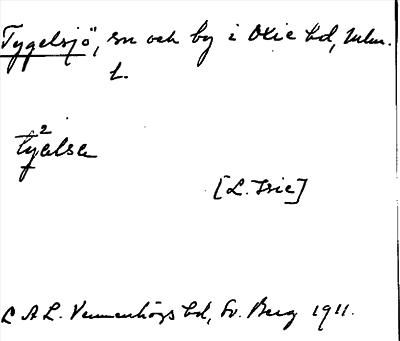 Tygelsjö, sn och by i Oxie hd, Mlm.
L.
tyelse
[L. Isie]
L A L. Vemmenhögs hd, Sv. Berg 1911.